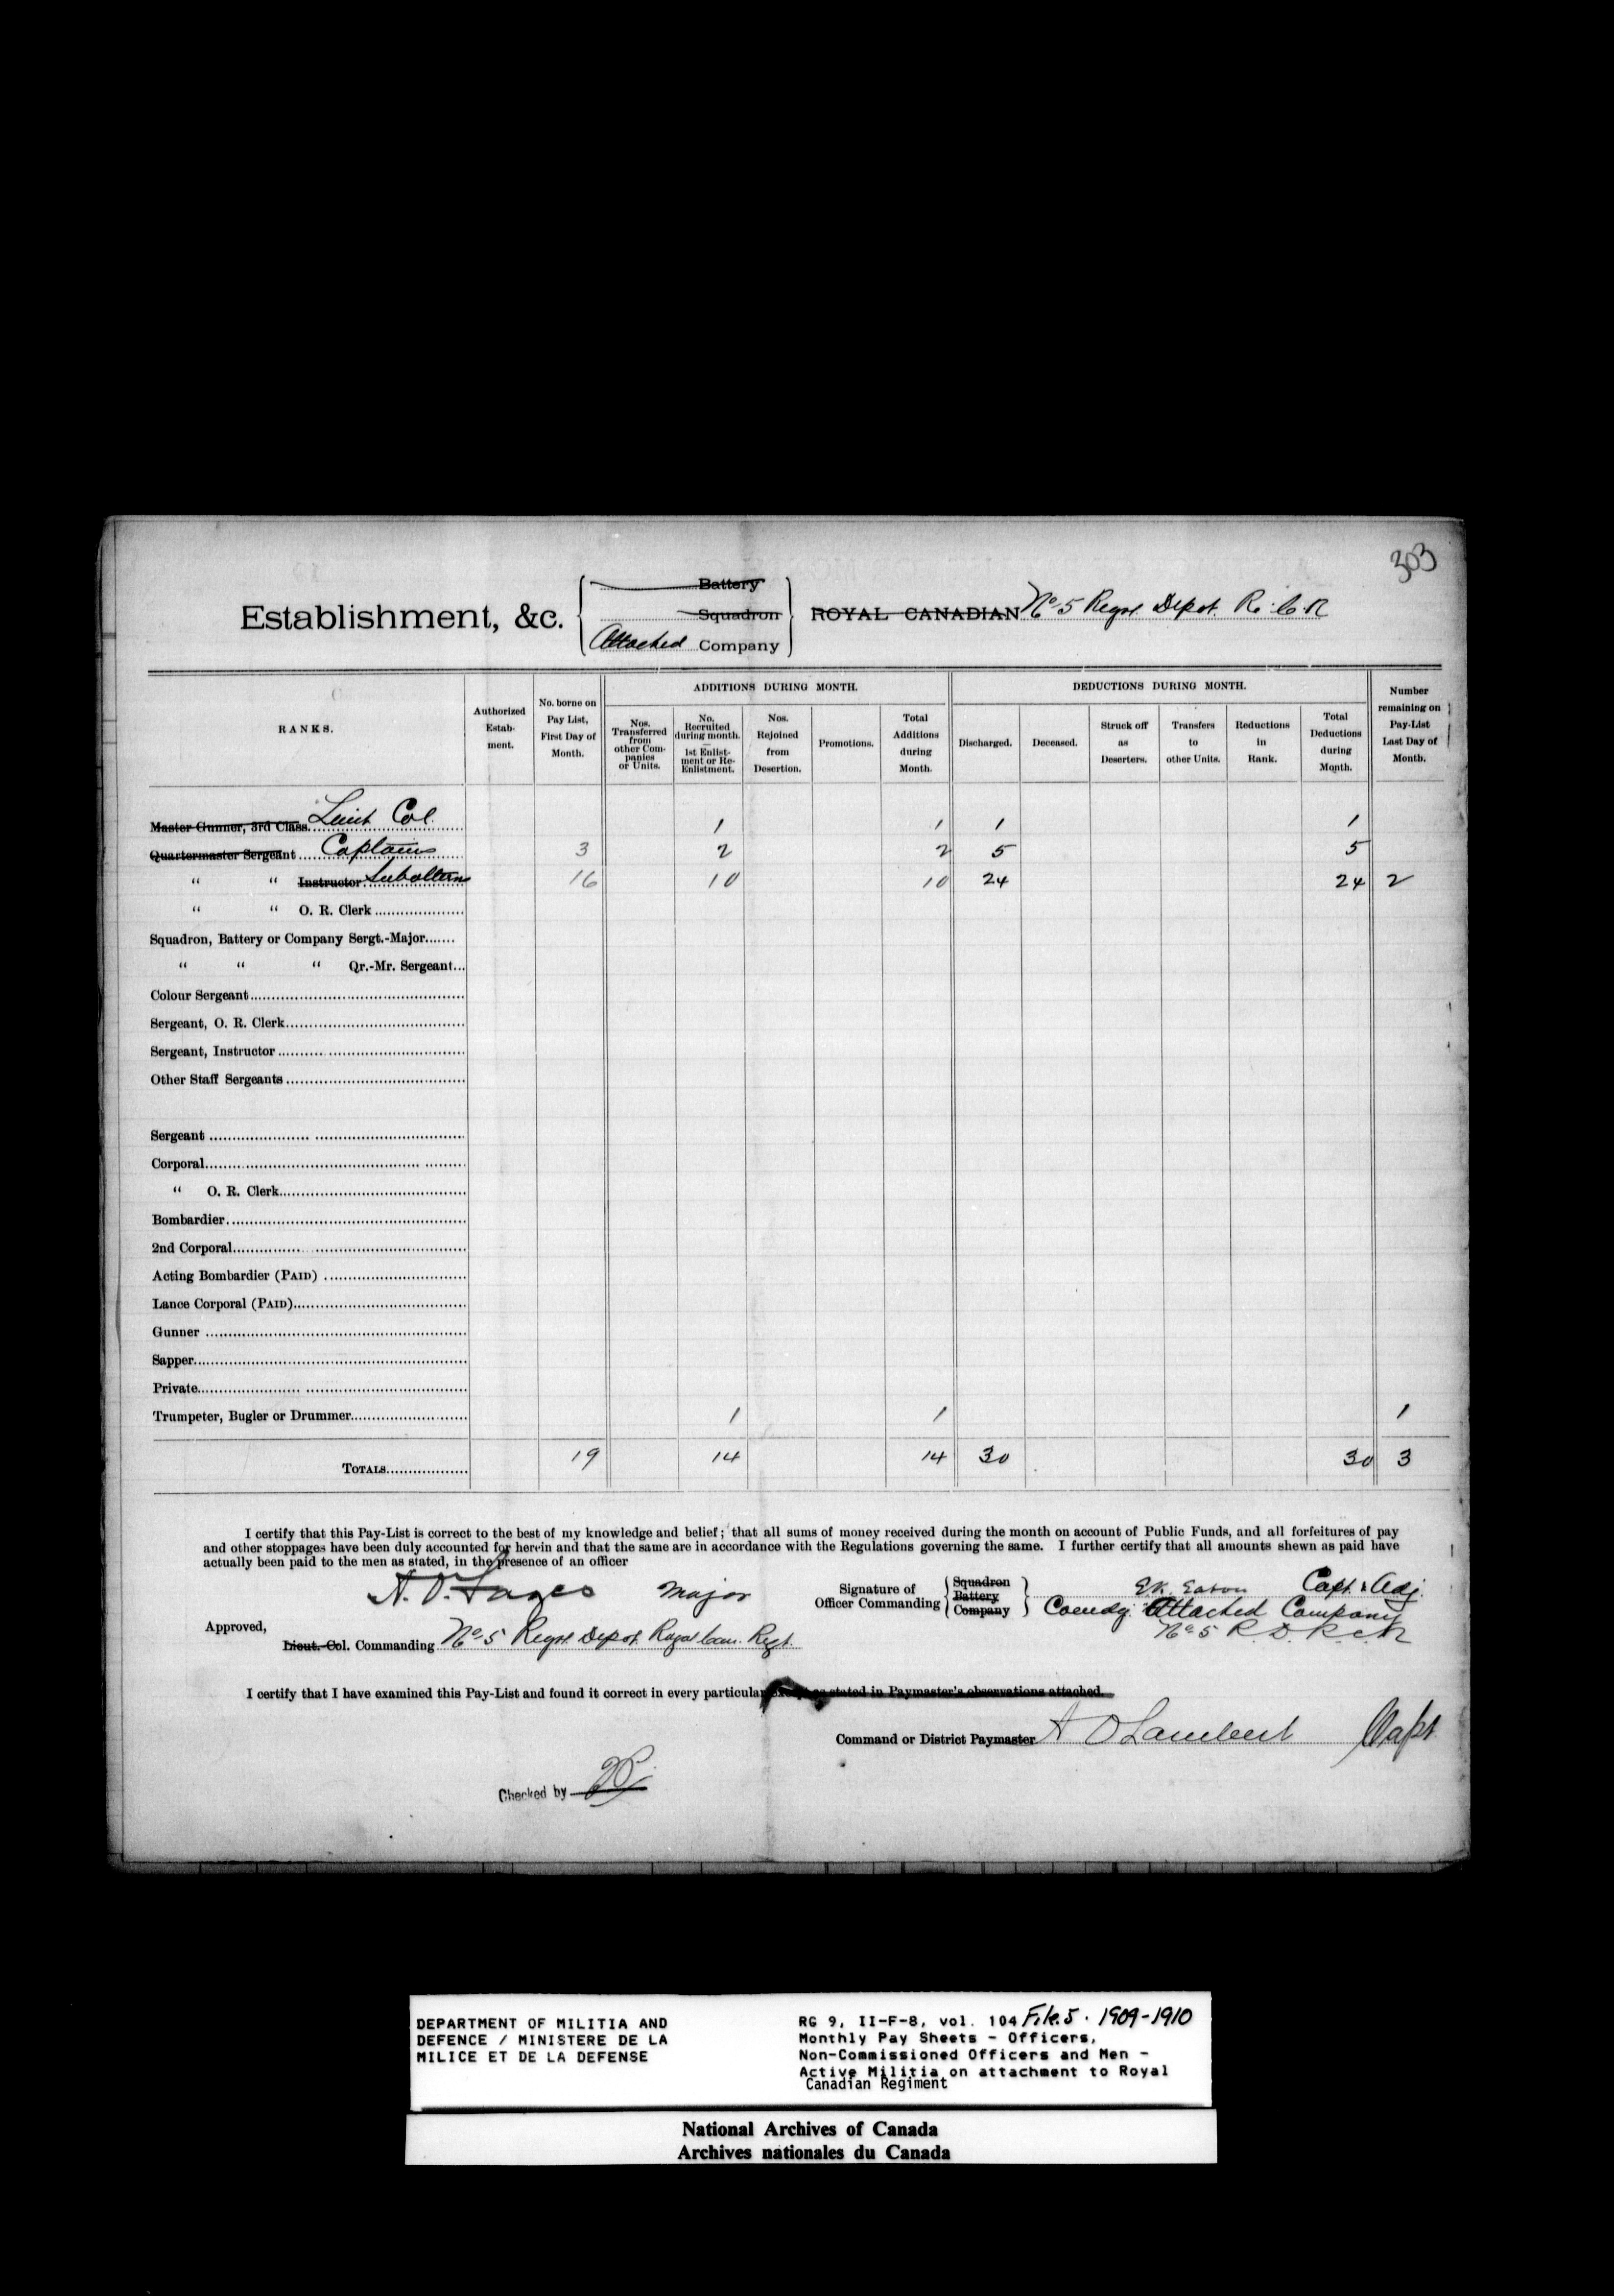 303
Battery
Establishment, &c. Squadron ROYAL CANADIAN No 5 Regtl. Depot. R. C. R
Attached Company
RANKS.
Authorized Estab- ment.
No. borne on Pay List, First Day of Month.
ADDITIONS DURING MONTH.
Nos. Transferred from other Com- panies or Units.
No. Recruited during month. — 1st Enlist- ment or Re- Enlistment.
Nos. Rejoined from Desertion.
Promotions.
Total Additions during Month.
DEDUCTIONS DURING MONTH.
Discharged.
Deceased.
Struck off as Deserters.
Transfers to other Units.
Reductions in Rank.
Total Deductions during Month.
Number remaining on Pay-List Last Day of Month.
Master Gunner, 3rd Class Lieut Col. 1 1 1 1
Quartermaster Sergeant Captains 3 2 2 5 5
" " Instructor Subalterns 16 10 10 24 24 2
" " O. R. Clerk
Squadron, Battery or Company Sergt.-Major
" " " Qr.-Mr. Sergeant
Colour Sergeant
Sergeant, O. R. Clerk
Sergeant, Instructor
Other Staff Sergeants
Sergeant
Corporal
" O. R. Clerk
Bombardier
2nd Corporal
Acting Bombardier (PAID)
Lance Corporal (PAID)
Gunner
Sapper
Private
Trumpeter, Bugler or Drummer 1 1 1
TOTALS 19 14 14 30 30 3
I certify that this Pay-List is correct to the best of my knowledge and belief; that all sums of money received during the month on account of Public Funds, and all forfeitures of pay
and other stoppages have been duly accounted for herein and that the same are in accordance with the Regulations governing the same. I further certify that all amounts shewn as paid have
actually been paid to the men as stated, in the presence of an officer
Major
Approved,
Lieut.-Col. Commanding No 5 Regtl. Depot. Royal Can. Regt.
Signature of Officer Commanding Squadron Battery Company E.K. Eaton Capt. & Adj.
Comdg. Attached Company
No 5 R. D. R. C. R
I certify that I have examined this Pay-List and found it correct in every particular except as stated in Paymaster's observations attached.
Command or District Paymaster A O Lambert Capt
Checked by
DEPARTMENT OF MILITIA AND
DEFENCE / MINISTERE DE LA
MILICE ET DE LA DEFENSE
RG 9, II-F-8, vol. 104 File 5. 1909-1910
Monthly Pay Sheets - Officers,
Non-Commissioned Officers and Men -
Active Militia on attachment to Royal
Canadian Regiment
National Archives of Canada
Archives nationales du Canada